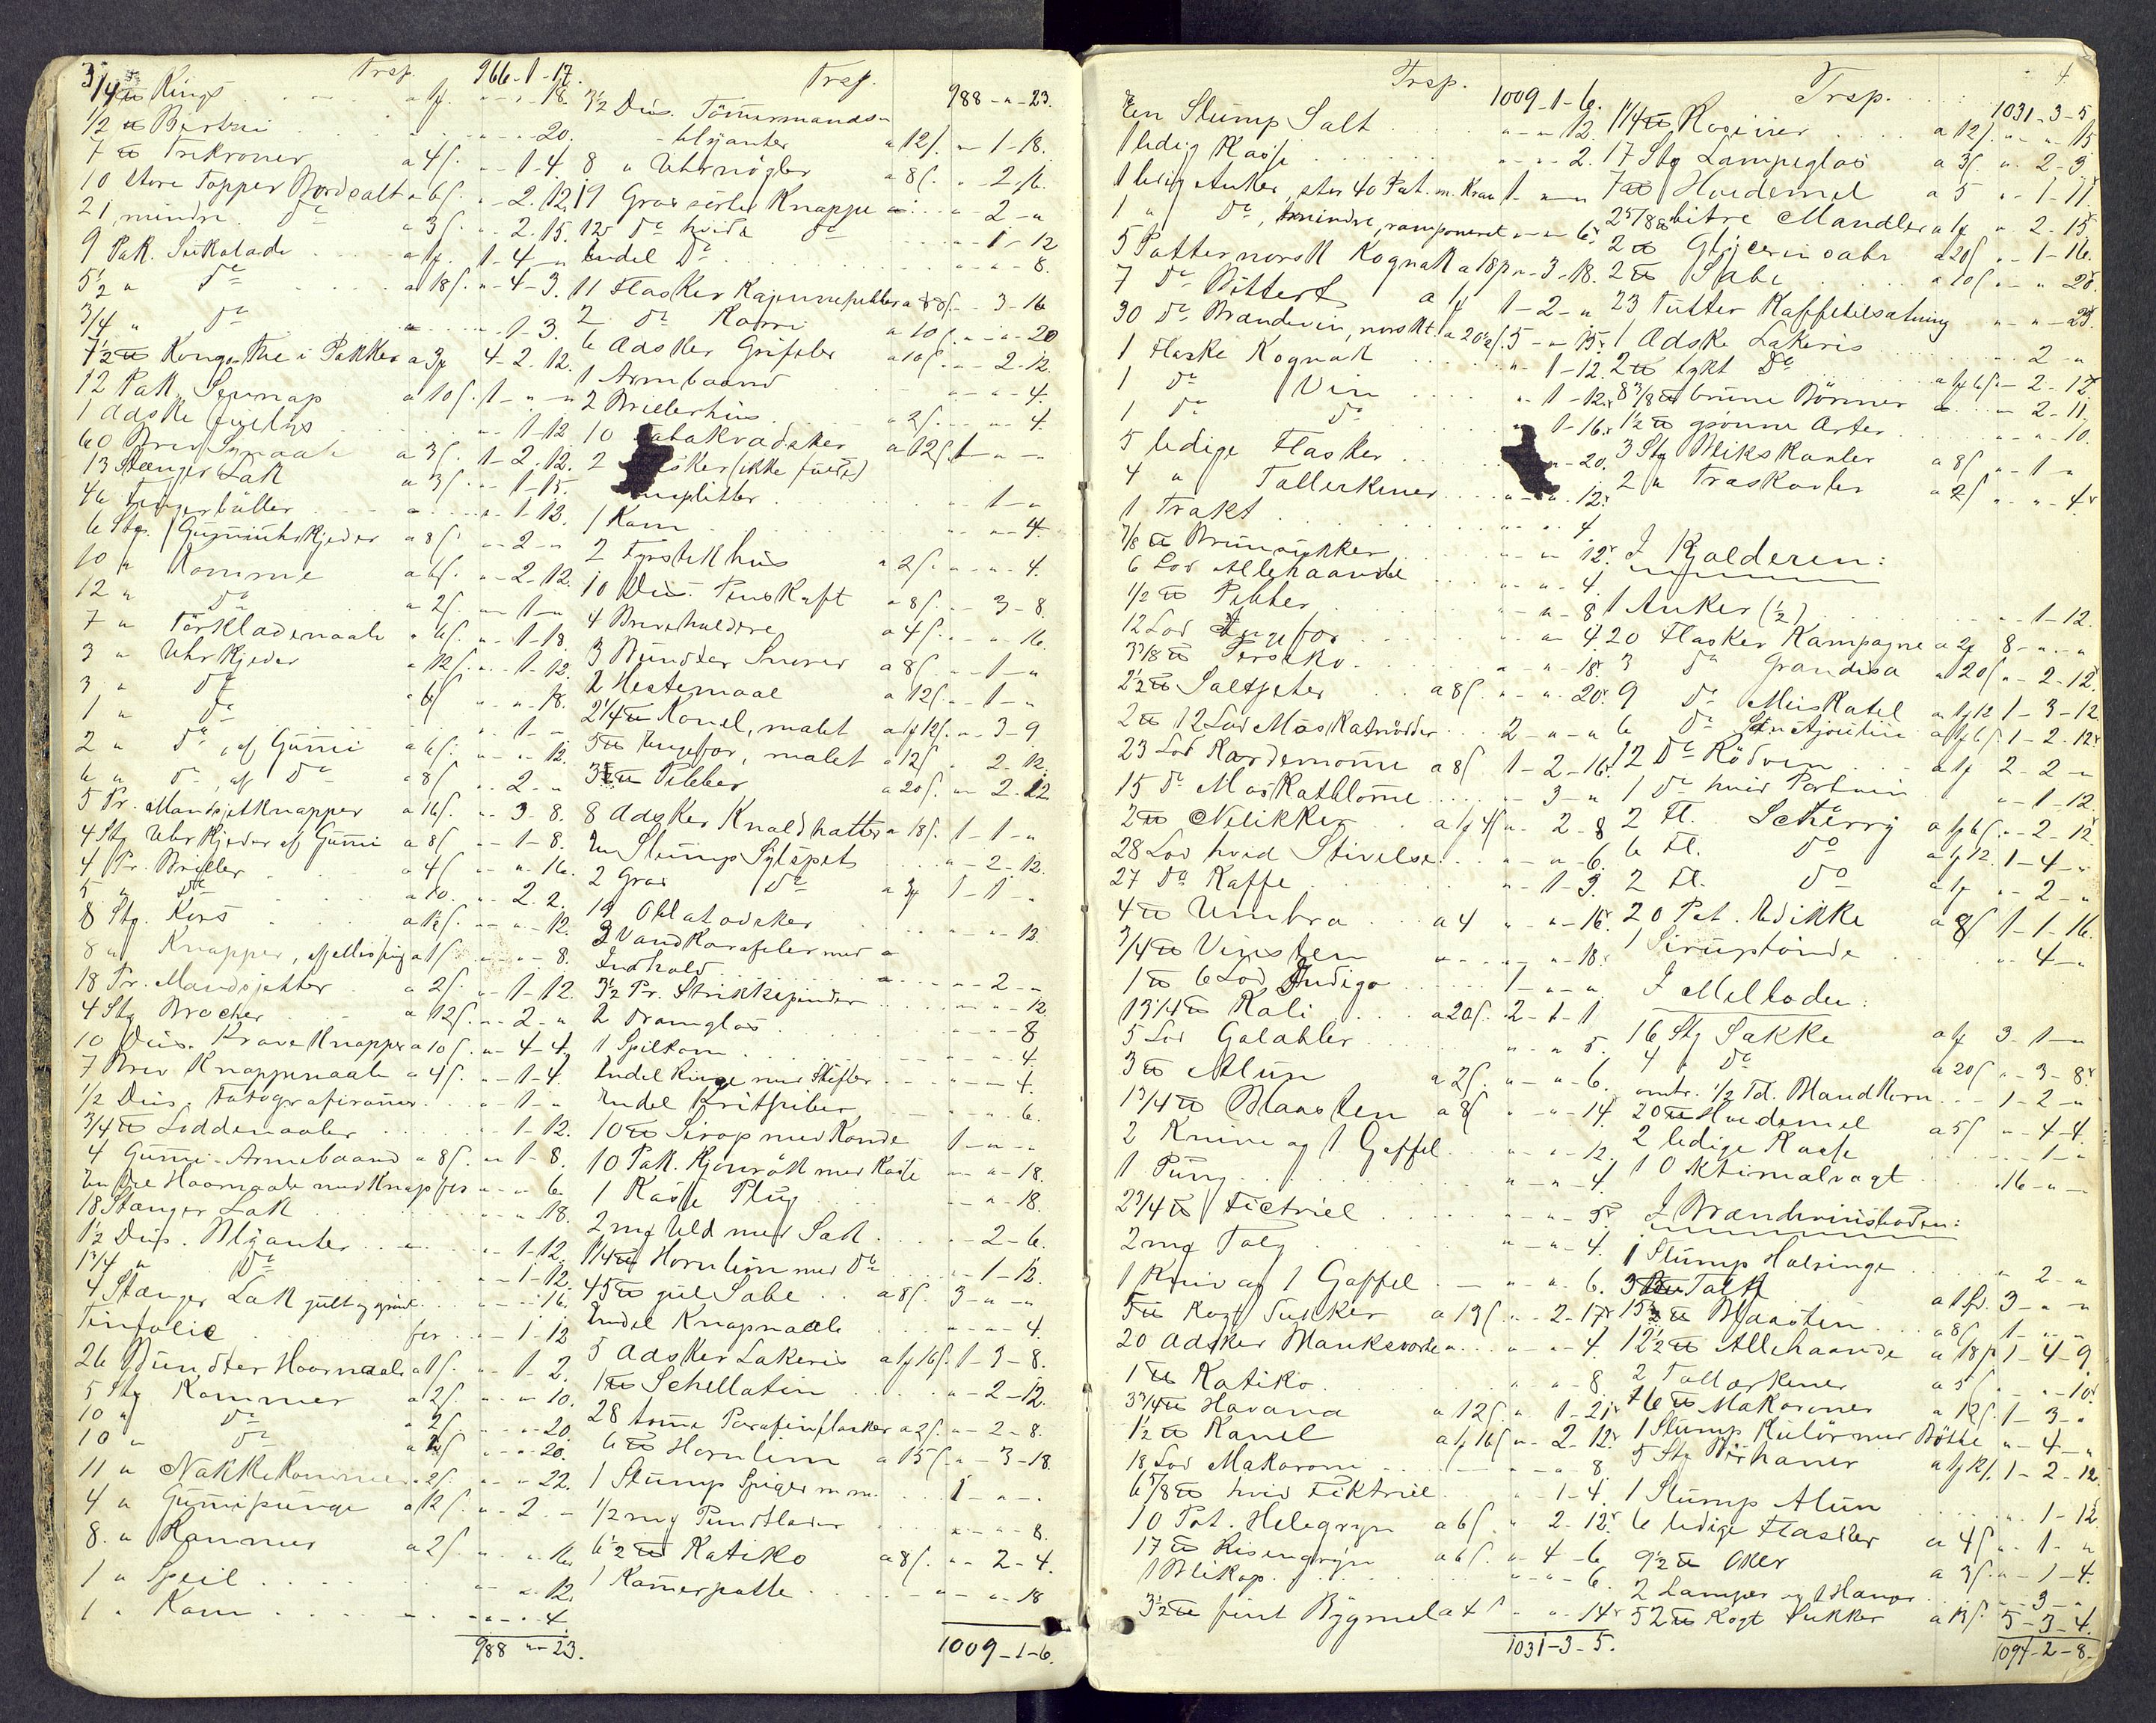 Trsp. 966-1-17.
3/4 ℔ Rings a 1ƒ. " - " - 18.
1/2 ℔ Bertrei " - " - 20.
7 ℔ Trekroner a 4ſ. " - 1 - 4.
10 store Topper Bordsalt a 6ſ. " - 2. 12.
21 mindre do a 3ſ. " - 2. 15.
9 Pak. Sukolade a 1ƒ. 1 - 4 - "
5½ " do a 18ſ. " - 4 - 3.
3/4 " do " - 1 - 3.
7½ ℔ Kongo The i Pakker a 3ƒ 4 - 2. 12.
12 Pak. Sennap a 10ſ. 1 - " - "
1 Adske " - 1 - 12
60 Brev Synaale a 3ſ. 1 - 2. 12.
13 Stænger Lak a 3ſ. " - 1 - 15.
46 Fingerbøller " - 1 - 12.
6 Stg. Gummiuhrkjeder a 8ſ. " - 2 - "
10 " Komme a 6ſ. " - 2 - 12.
12 " do a 2ſ. " - 1 - "
7 " Törkladenaale a 6ſ. " - 1 - 18.
3 " Uhrkjeder a 12ſ. " - 1 - 12.
3 " do a 6ſ " - " - 18.
1 " do " - 1 - "
2 " do, af Gumi a 6ſ. " - " - 12.
6 " do, af do a 8ſ " - 2 - "
5 Pr. Mansjetknapper a 16ſ. " - 3 - 8.
4 Stg Uhrkjeder af Gumi a 8ſ " - 1 - 8.
4 Pr. Briller a 4ſ " - " - 16.
5 " do a 10. " - 2. 2.
8 Stg. Kors " - " - 12.
8 " Knapper, a 1ſ " - " - 8.
18 Pr. Mandsjetter a 2ſ. " - 1 - 12.
4 Stg Brocher a 12ſ. " - 2 - "
10 Dus. Kraveknapper a 10ſ. " - 4 - 4.
7 Brev Knappenaale a 4ſ. " - 1 - 4.
1/2 Dus. Fotografiramer " - 1 - "
3/4 ℔ Soddenaaler " - 1 - 12.
4 Gumi-Armebaand a 8ſ. " - 1 - 8.
En Del Haarnaale med Knap for " - " - 6.
18 Stænger Lak " - " 18.
1½ Dus. Blyanter " - 1 - 12.
1 3/4 " do " - 1 - 12.
4 Stænger Lak gult og grönt " - " - 16.
Tinfolie for " - 1 - 12
26 Bundter Haarnaale a 1ſ. " - 1 - 2.
5 Stg Kammer a 2ſ. " - " - 10.
10 " do a 2ſ " - " - 20.
10 " do a 2ſ " - " - 20.
11 " Nakkekammer a 2ſ. " - " - 22.
4 " Gumipunge a 12ſ. " - 2 - "
8. " Kammer a 2ſ " - " - 16.
1 " Speil " - " - 12.
1 " Kam " - " - 4.
988 " - 23.
Trsp. 988 - " - 23.
3½ Dus. Tömmermands-
blyanter a 12ſ. " - 1 - 18.
8 " Uhrnögler a 8ſ. " - 2. 16.
19 Gros sorte Knappe " - 2 - "
12 do hvide do " - 1 - 12
Endel do " - " - 8.
11 Flasker Kapunepebber a 8ſ. " 3 - 16
2 do Karri a 10ſ. " - " - 20
6 Adsker Grifler a 10ſ. " - 2 - 12.
1 Armbaand " - " - 4.
2 Brillerhus a 2ſ. " - " - 4.
10 Tobakvadsker a 12ſ 1 - " - "
2 (ikke fulde)
" - 1 - "
1 Kam " - " - 4.
2 Fyrstikhus a 2ſ. " - " - 4.
10 Dus. Penskaft a 8ſ. " - 3 - 8.
4 Breveholdere a 4ſ. " - " - 16.
3 Bundter Snorer a 8ſ. " - 1 - "
2 Hestemaal a 12ſ. " - 1 - "
2 1/4 ℔ Konel, malet a 1ƒ 12ſ. " - 3 - 9
5 ℔ Ingefor, malet a 12ſ " 2 - 12.
3½ ℔ Pebber a 20ſ. " - 2 - 22
8 Adsker Knaldhatter a 18ſ. 1 - 1 - "
En Slump Sylspet " - 2 - 12.
2 Gros do a 3ƒ 1 - 1 - "
19 Oblatadsker " - " - 12
3 Vandkarafler med
Indhold " - 2 - "
3½ Pr. Strikkepinder " - " - 12.
2 Dramglas " - " - 8
1 Spilkom " - " - 4.
Endel Ringe med Stifter " - " - 4.
Endel Kritpiber " - " - 6.
10 ℔ Sirop med Kande 1 - " - "
10 Pak. Kjönrök med Kasse " - " - 18.
1 Kasse Plug " - " - 18.
2 mg Uld med Sæk " - 2 - 6.
1 1/4 ℔ Hornlim med do " - 1 - 12.
45 ℔ gul Sabe a 8ſ. 3 - " - "
Endel Knapnaale " - " - 4.
5 Adsker Lakeris a 1ƒ 16ſ. 1 - 3 - 8.
1 ℔ Schellatin " - 2 - 12.
28 tomme Parafinflasker a 2ſ. " - 2 - 8.
6 ℔ Hornlim a 15ſ. " - 3 - 18.
1 Slump Spiger m.m. 1 - " - "
1/2 mg Pundtlader " - " - 8.
6½ ℔ Katiko a 8ſ. " - 2 - 4.
1 Kamerpotte " - " - 18
1009 - 1 - 6.
Trsp. 1009 - 1 - 6.
En Slump Salt " - " 12.
1 ledig Kasse " - " - 2.
1 ledig Anker, stor 40 Pot. m. Kran 1 - " - "
1 " do, mindre, ramponeret " - " 6.
5 Potter norsk Kognak a 18ſ " - 3 - 18.
7 do Bittert a 1ƒ 1 - 2 - "
30 do Brandevin, norskt. a 20½ſ. 5 - " - 15.
1 Flaske Kognak " - 1 - 12.
1 do Vin " - 1 - 12.
1 do do " 1 - 16.
5 ledige Flasker " - 20.
4 " Tallerkener " - " - 12.
1 Trakt " - " - 4.
7/8 ℔ Brunsukker " - " 12.
6 Lod Allehaande " - " - 4.
1/2 ℔ Pebber " - " - 8
12 Lod Ingefor " - " 4.
3 3/8 ℔ Persiko " - " - 18.
2½ ℔ Saltpeter a 8ſ. " - " - 20.
2 ℔ 12 Lod Moskatnödder 2 - " - "
23 Lod Kardemome a 8ſ 1 - 2 - 16.
15 do Moskatblome " - 3 - "
2 ℔ Nelikker a 1ƒ 4ſ " - 2 - 8
28 Lod hvid Stivelse " - " - 6.
27 do Kaffe " - 1 - 3.
4 ℔ Umbra a 4 " - " - 16.
3/4 ℔ Vinsten " - " - 18.
1 ℔ 6 Lod Indigo 1 - " - "
13 1/4 ℔ Kali a 20ſ. 2 - 1 - 1
5 Lod Galabler " - " 5.
3 ℔ Alun a 2ſ. " - " - 6.
1 3/4 ℔ Blaasten a 8ſ " - " - 14.
2 Knive og 1 Gaffel " - " - 12.
1 Pung " - " - 4.
2 3/4 ℔ Fictriel " - " - 5.
2 mg Talg " - " - 4.
1 Kniv og 1 Gaffel " - " - 6.
5 ℔ Kogt Sukker a 13ſ " - 2 - 17.
20 Adsker Blanksværte " - " - 4.
1 ℔ Katiko " - " - 8
3 3/4 ℔ Havana a 12ſ. " 1 - 21.
1½ ℔ Kanel a 1ƒ 16ſ " - 2 - 12.
18 Lod Makaroni " - " - 8.
6 5/8 ℔ hvid Fiktriel " 1 - 4.
10 Pot. Helegryn a 6ſ. " - 2 - 12.
17 ℔ Risengryn a 6ſ. " - 4 - 6
1 Blikop " - " - 6.
3½ ℔ fint Bygmel a 4ſ " - " - 14
1031 - 3 - 5.
4
Trsp. 1031 - 3 - 5
1 1/4 ℔ Rosiner a 12ſ. " - " 15
17 Stg Lampeglas a 3ſ " - 2 - 3.
7 ℔ Hvedemel a 5 " - 1 - 11.
2 5/8 ℔ bitre Mandler a 1ƒ " - 2 - 15.
2 ℔ Glycerinsabe a 20ſ " - 1 - 16.
2 ℔ Sabe a 10ſ " - " 20.
23 Tutter Kaffetilsatning " - " - 23.
1 Adske Lakeris 2 - "
2 ℔ tykt do a 1ƒ 6ſ " - 2 - 12.
8 3/8 ℔ brune Bönner " - 2 - 11.
1½ ℔ grönne Ærter " - " - 10.
3 Stg Blikskauler a 8ſ " - 1 - "
2 " Traskauler a 2ſ " - " - 4.
I Kjalderen:
1 Anker (½) " - 1 - 12.
20 Flasker Kampagne a 2ƒ 8 - " - "
3 do Grandisa a 20ſ " - 2 - 12.
9 do Muskatel a 1ƒ 12 1 - 3 - 12.
6 do a 1ƒ 6ſ 1 - 2 - 12.
12 do Rödvin a 1ƒ 2 - 2 - "
1 do hvid Portvin " - 1 - 12.
2 Fl. Scherry a 1ƒ 6ſ " - 2 - 12.
6 Fl. do a 1ƒ 12. 1 - 4 - "
2 Fl. do a 1ƒ " - 2 - "
20 Pot. Edikke a 8ſ 1 - 1 - 16.
1 Siruptönde " - 4 - "
I Melboden:
16 Stg Sakke a 1ƒ 3 - 1 - "
4 " do a 20ſ " - 3 - 8.
omtr. ½ Td. Blandkorn 1 - 2 - "
20 ℔ Hvedemel a 5ſ " - 4 - 4.
2 ledige Kasse " - 1 - "
1 Oktimalvagt 16 - " - "
I Brandevinsboden:
1 Slump Halringe " 2 - "
3 Talg a 1ƒ. 3 - " - "
15 ℔ Blaasten a 8ſ 1 - " - "
12½ ℔ Allehaande a 18ſ 1 - 4 - 9
2 Tallarkener a 5ſ " - " - 10.
6 ℔ Makaroner a 12ſ. 1 - 3 - "
1 Slump Kulör med Bötte " - 4 - "
5 Stg Pirhaner a 1ƒ 12ſ. 1 - 2 - 12.
1 Slump Alun " 1 - 12.
6 ledige Flasker a 4ſ " - 1 - "
9½ ℔ Oker a 3ſ " - 1 - 4.
2 Lamper og 1 Hammer " 3 - "
52 ℔ Kogt Sukker a 13ſ. 5 - 3 - 4.
1094 - 2 - 8.